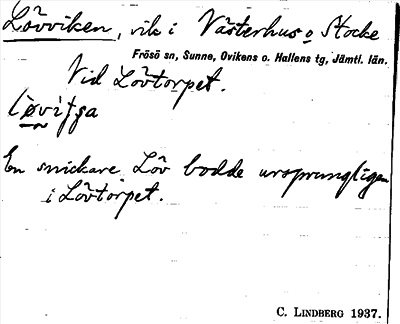 Lövviken, vik i Västerhus o Stocke
Frösö sn, Sunne, Ovikens o. Hallens tg, Jämtl. län.
Vid Lövtorpet.
En snickare Löv bodde ursprungligen
i Lövtorpet.
C. LINDBERG 1937.